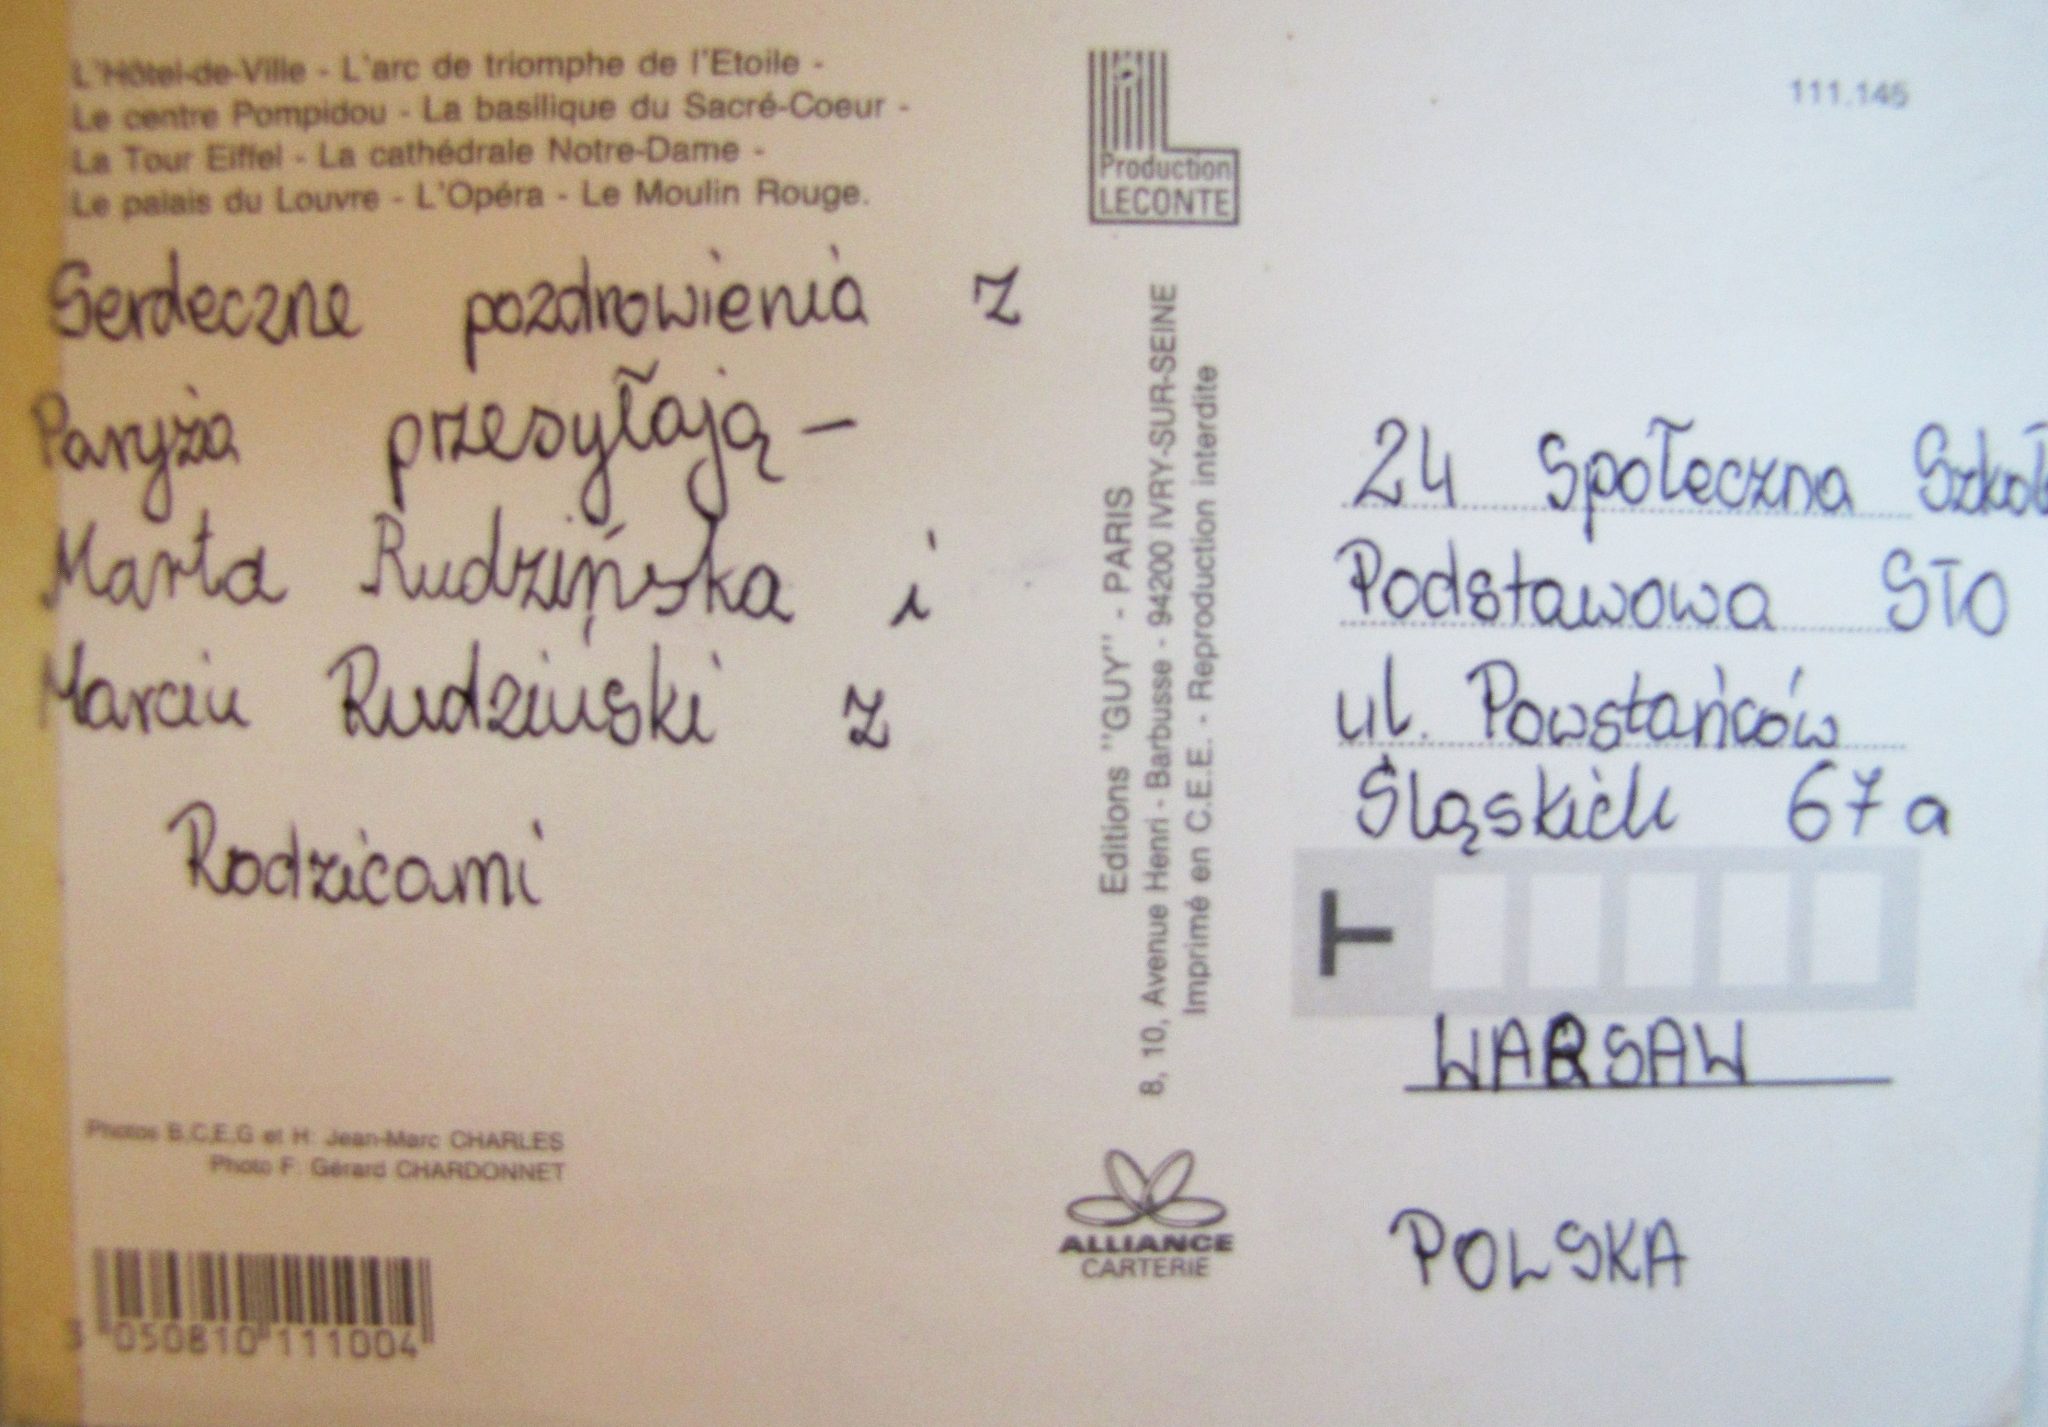 L'Hôtel-de-Ville - L'arc de triomphe de l'Etoile -
Le centre Pompidou - La basilique du Sacré-Coeur -
La Tour Eiffel - La cathédrale Notre-Dame -
Le palais du Louvre - L'Opéra - Le Moulin Rouge.
Serdeczne pozdrowienia z
Paryża przesyłają –
Marta Rudzińska i
Marcin Rudzinski z
Rodzicami
Photos B.C.E.G et H: Jean-Marc CHARLES
Photo F: Gérard CHARDONNET
3 050810 111004
Production
LECONTE
Editions "GUY" - PARIS
8, 10, Avenue Henri - Barbusse - 94200 IVRY-SUR-SEINE
Imprimé en C.E.E. - Reproduction interdite
ALLIANCE
CARTERIE
111.145
24 Społeczna Szkoł
Podstawowa STO
ul. Powstańców
Śląskich 67a
T
WARSAW
POLSKA